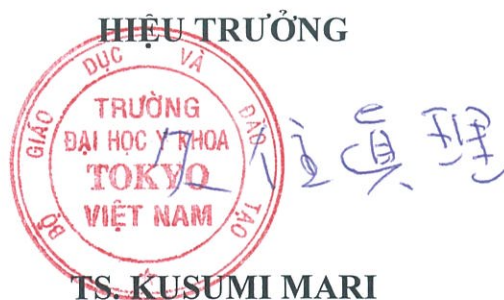 HIỆU TRƯỞNG
BỘ GIÁO DỤC VÀ ĐÀO TẠO
TRƯỜNG
ĐẠI HỌC Y KHOA
TOKYO
VIỆT NAM
久住眞理
TS. KUSUMI MARI